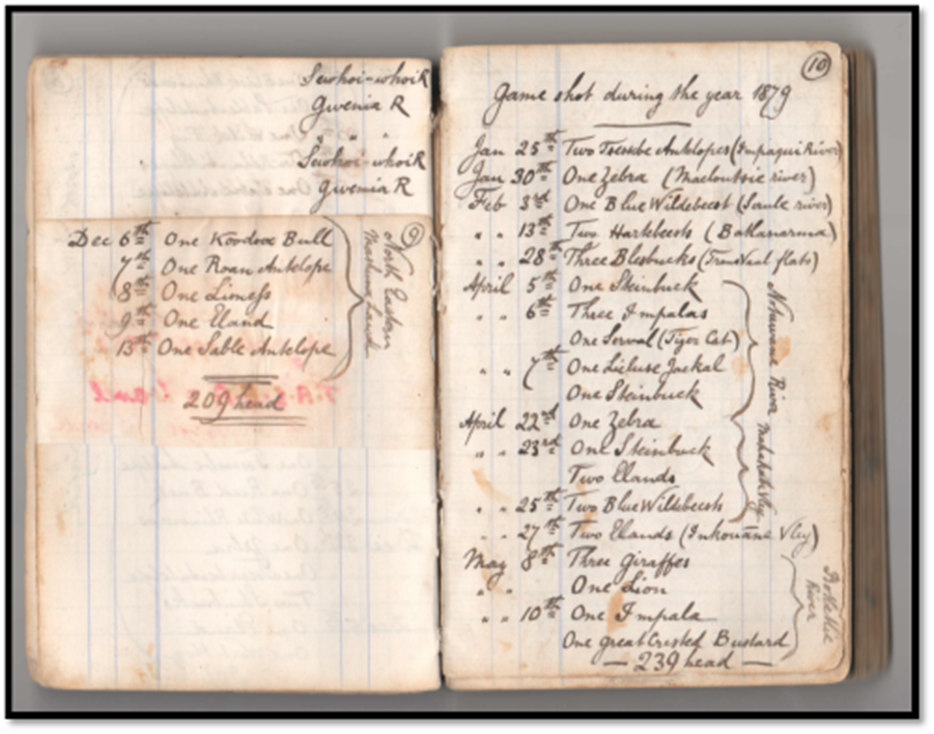 Sewhoi-whoi R
Gwenia R
" " "
Sewhoi-whoi R
Gwenia R
Dec 6th One Koodoo Bull
7th One Roan Antelope
8th One Lioness
9th One Eland
13th One Sable Antelope
North Eastern
Mashuna Land
9
209 head
10
Game shot during the year 1879
Jan 25th Two Tsessbe Antelopes (Impaqui River)
Jan 30th One Zebra (Macloutsie river)
Feb 3rd One Blue Wildebeest (Saule river)
" " 13th Two Hartebeests (Batlanarma)
" " 28th Three Blesbucks (Transvaal flats)
April 5th One Steinbuck
" " 6th Three Impalas
One Serval (Tiger Cat)
" " 7th One Jackal
One Steinbuck
April 22nd One Zebra
" " 23rd One Steinbuck
Two Elands
" " 25th Two Blue Wildebeests
River
" " 27th Two Elands (Inkouane Vley)
May 8th Three Giraffes
" " One Lion
" " 10th One Impala
One great Crested Bustard
River
239 head